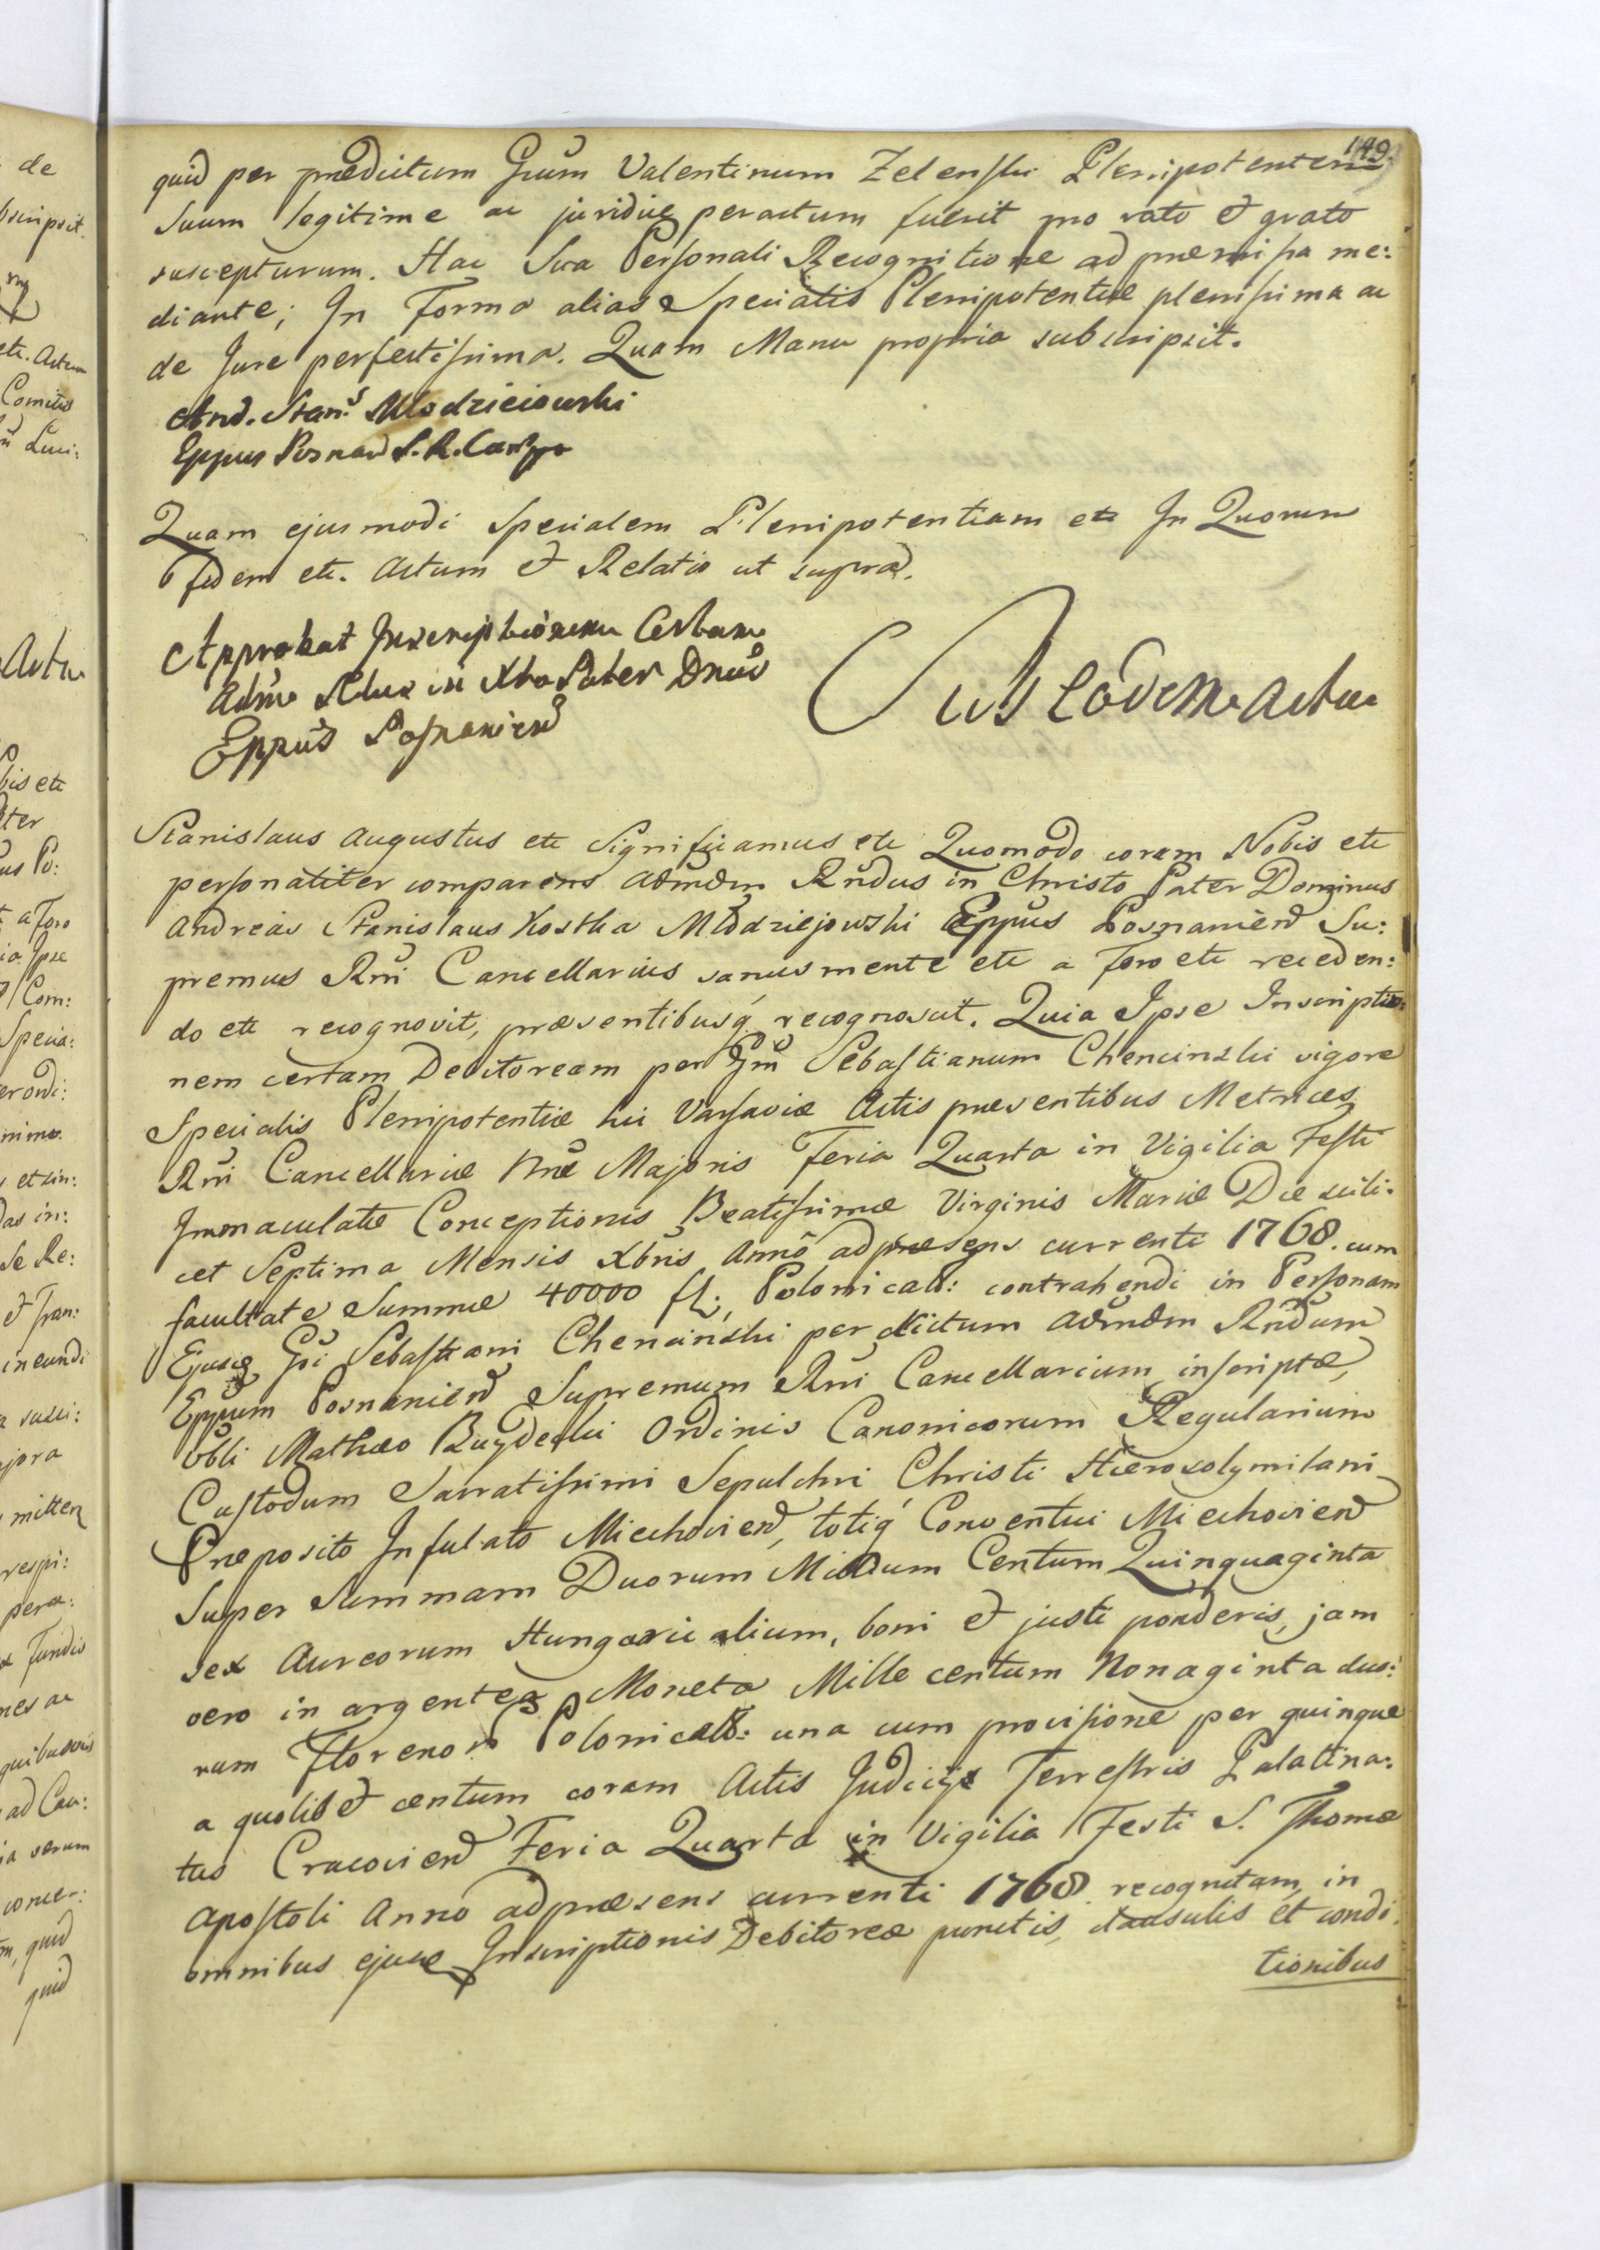 149.
quid per prædictum Grum Valentinum Zelenski Plenipotentem
Suum legitime ac juridicę peractum fuerit pro rato et grato
suscepturum. Hac Sua Personali Recognitione ad præmissa me:
diante; In Forma alias Specialis Plenipotentiæ plenissima ac
de Jure perfectissima. Quam Manu propria subscripsit.
And. Stan.s Młodzieiowski
Eppus Posnan S. R. Canz
Quam ejusmodi Specialem Plenipotentiam etc In Quorum
Fidem etc. Actum et Relatio ut supra.
Approbat Inscriptionem Certam
Adm Rdus in Xto Pater Dnus
Eppus Posnanien
Sub eodem Actu
Stanislaus Augustus etc Significamus etc Quomodo coram Nobis etc
personaliter comparens Admdm Rndus in Christo Pater Dominus
Andreas Stanislaus Kostka Młodziejowski Eppus Posnanien Su:
premus Rni Cancellarius sanus mente etc a Foro etc receden:
do etc recognovit, præsentibusq recognoscit. Quia Ipse Inscriptio:
nem certam Debitoream per Grm Sebastianum Chencinski vigore
Specialis Plenipotentiæ hic Varsaviæ Actis præsentibus Metrices
Rni Cancellariæ Nræ Majoris Feria Quarta in Vigilia Festi
Immaculatæ Conceptionis Beatissimæ Virginis Mariæ Die scili:
cet Septima Mensis Xbris Anno ad præsens currenti 1768. cum
facultate Summæ 40000 fl: Polonical: contrahendi in Personam
Ejusd Gsi Sebastiani Chencinski per dictum Admdm Rndum
Eppum Posnanien Supremum Rni Cancellarium inscriptæ,
Vbli Mathæo Buydecki Ordinis Canonicorum Regularium
Custodum Sacratissimi Sepulchri Christi Hierosolymitani
Præposito Infulato Miechovien, totiq Conventui Miechovien
Super Summam Duorum Millium Centum Quinquaginta
sex Aureorum Hungaricalium, boni et justi ponderis, jam
vero in argentea Moneta Mille centum Nonaginta duo:
rum Florenor Polonical: una cum provisione per quinque
a quolibet centum coram Actis Judicijs Terrestris Palatina:
tus Cracovien Feria Quarta in Vigilia Festi S. Thomæ
Apostoli Anno ad præsens currenti 1768 recognitam, in
omnibus ejusd Inscriptionis Debitoreæ punctis, clausulis et condi:
tionibus